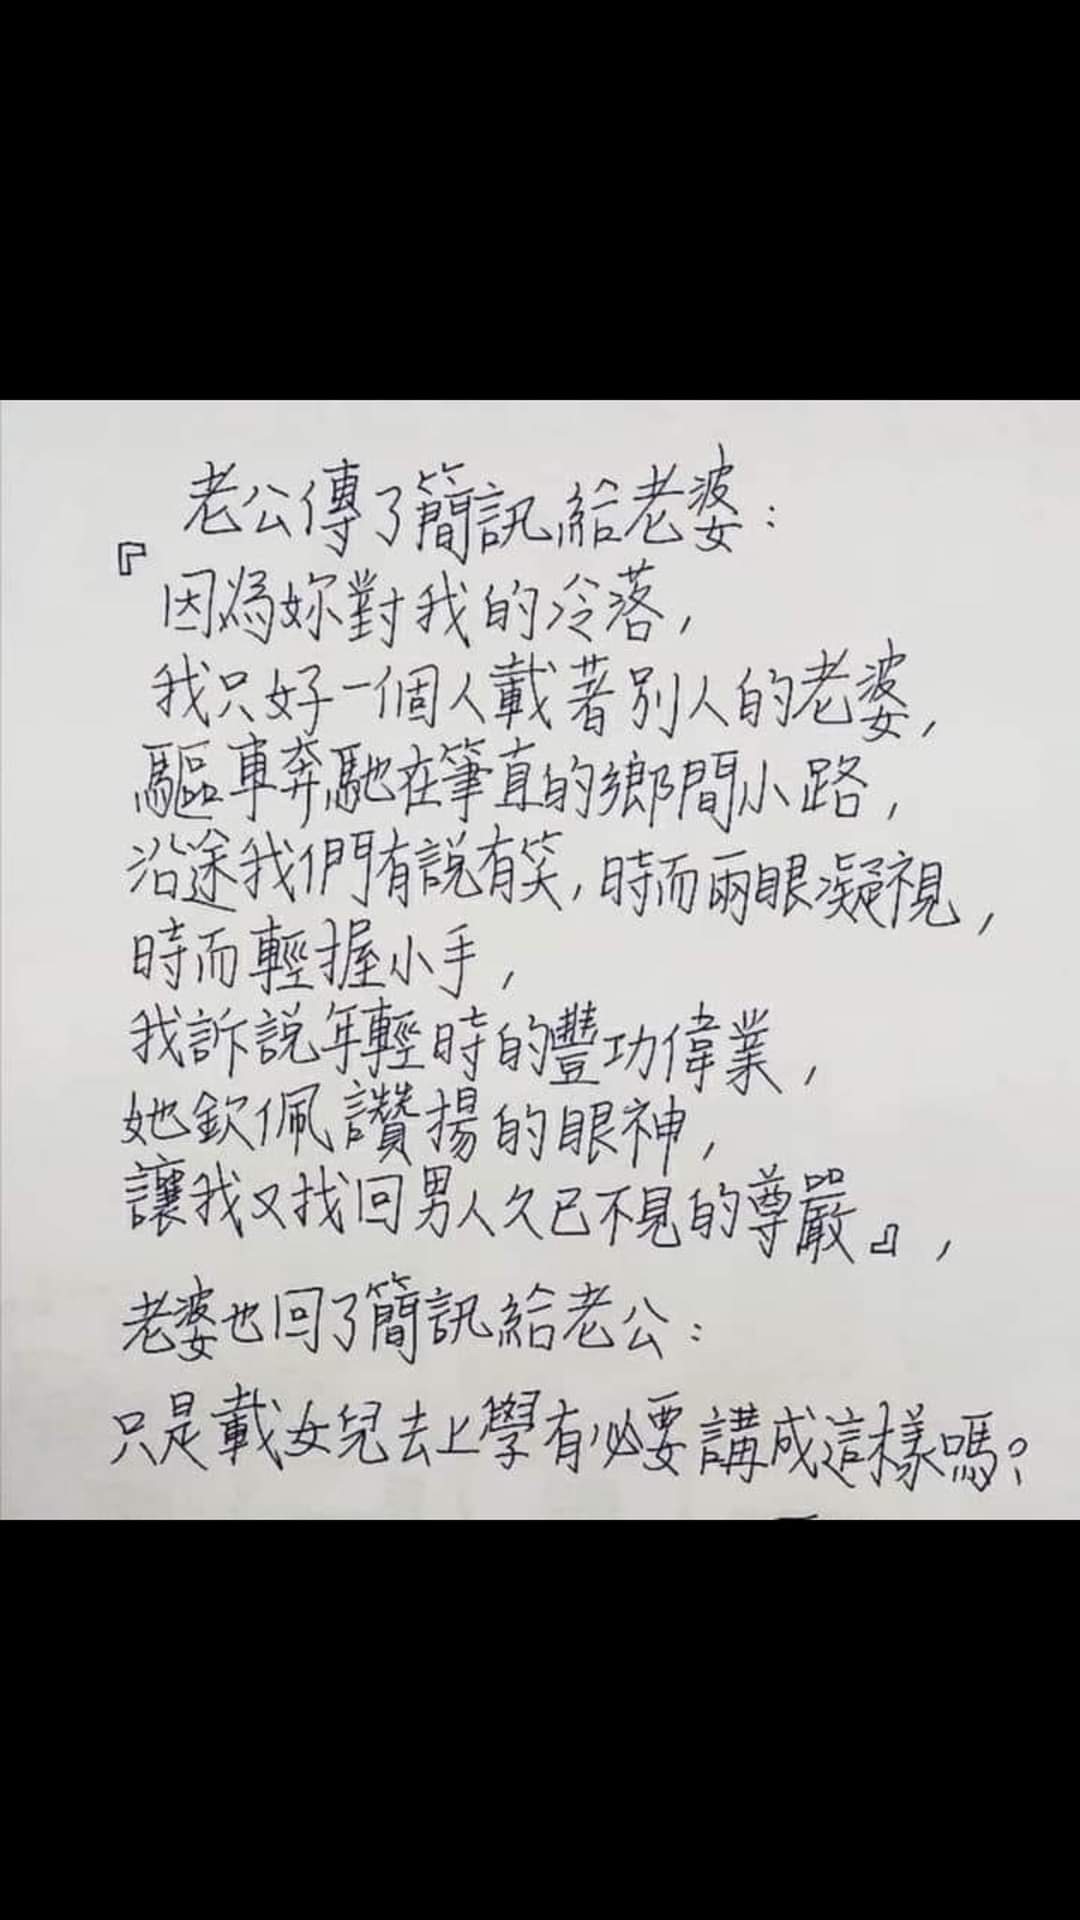 老公傳了簡訊給老婆:
『因為妳對我的冷落,
我只好一個人載著別人的老婆,
驅車奔馳在筆直的鄉間小路,
沿途我們有說有笑,時而兩眼凝視,
時而輕握小手,
我訴說年輕時的豐功偉業,
她欽佩讚揚的眼神,
讓我又找回男人久已不見的尊嚴』,
老婆也回了簡訊給老公:
只是載女兒去上學有必要講成這樣嗎?